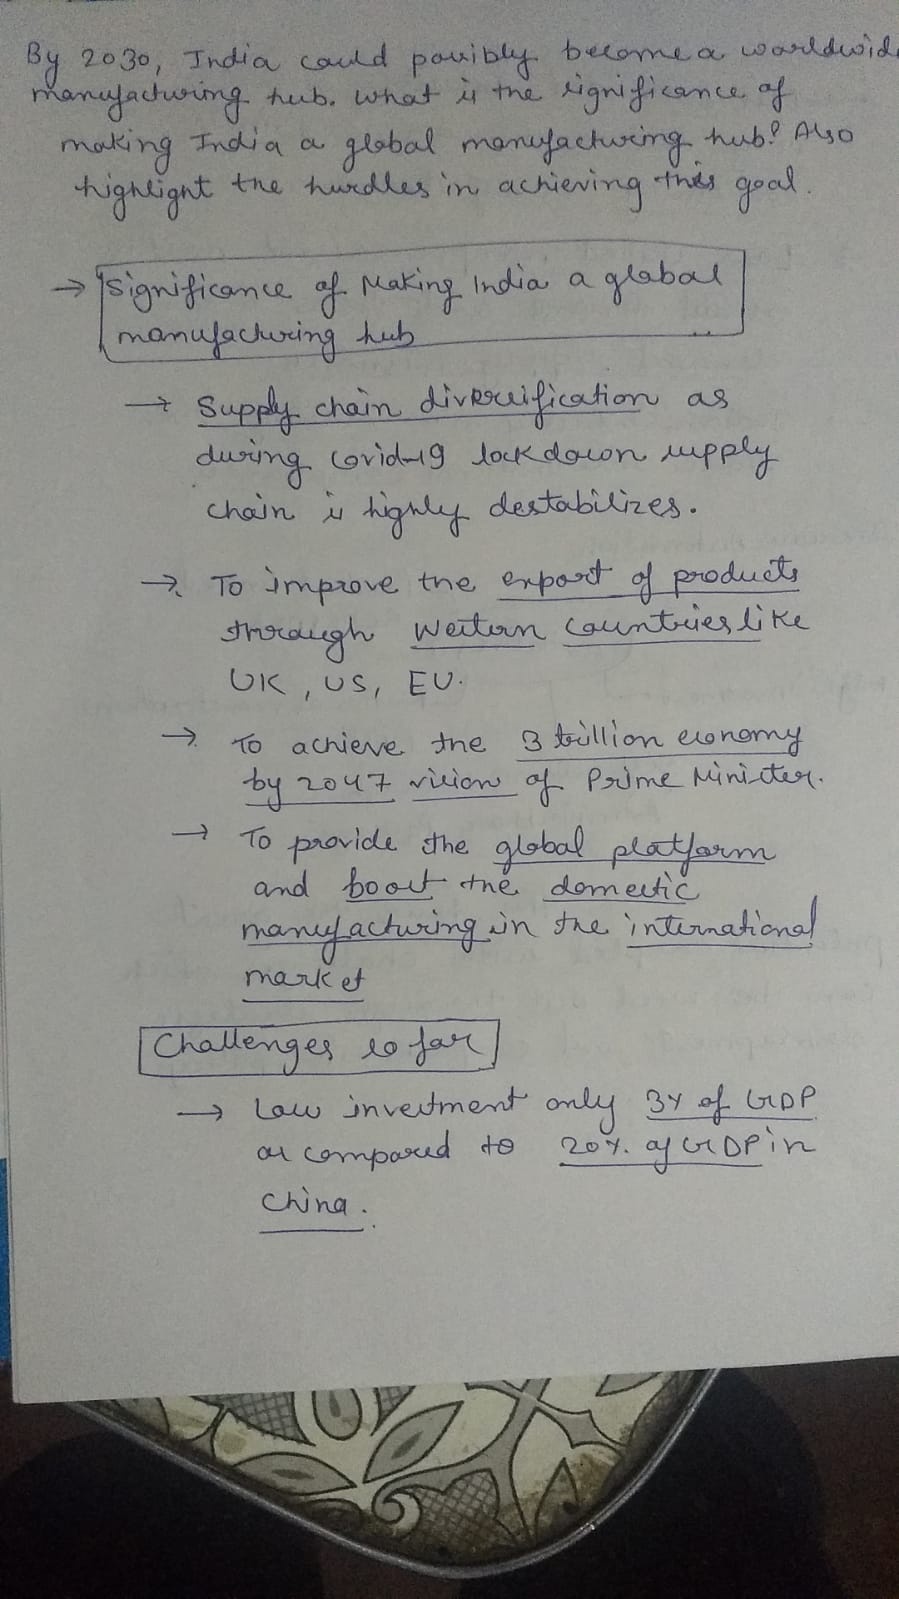 By 2030, India could possibly become a worldwide
manufacturing hub. What is the significance of
making India a global manufacturing hub? Also
highlight the hurdles in achieving this goal.
→ Significance of Making India a global
manufacturing hub
→ Supply chain diversification as
during Covid-19 lockdown supply
chain is highly destabilizes.
→ To improve the export of products
through Western Countries like
UK, US, EU.
→ To achieve the 3 trillion economy
by 2047 vision of Prime Minister.
→ To provide the global platform
and boost the domestic
manufacturing in the international
market
Challenges so far
→ Low investment only 3% of GDP
as compared to 20% of GDP in
China.